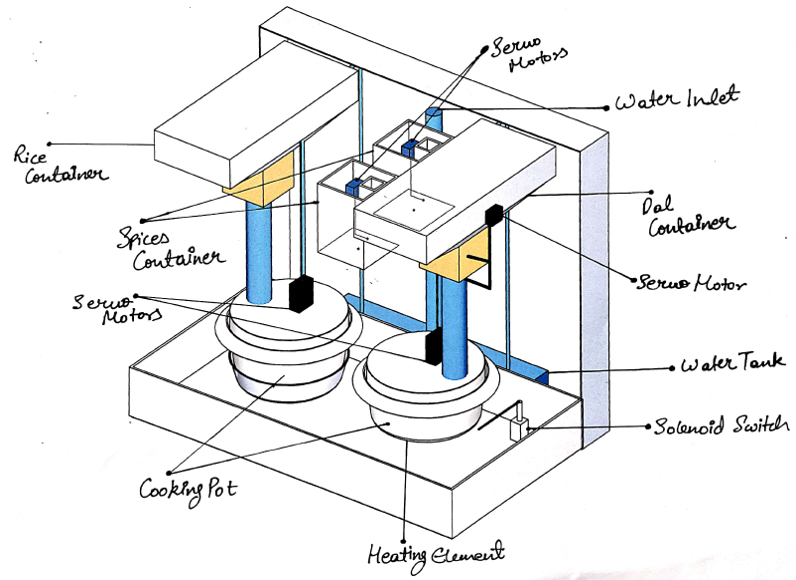 Servo
Motors
Water Inlet
Rice
Container
Spices
Container
Dal
Container
Servo Motor
Servo
Motors
Water Tank
Solenoid Switch
Cooking Pot
Heating Element